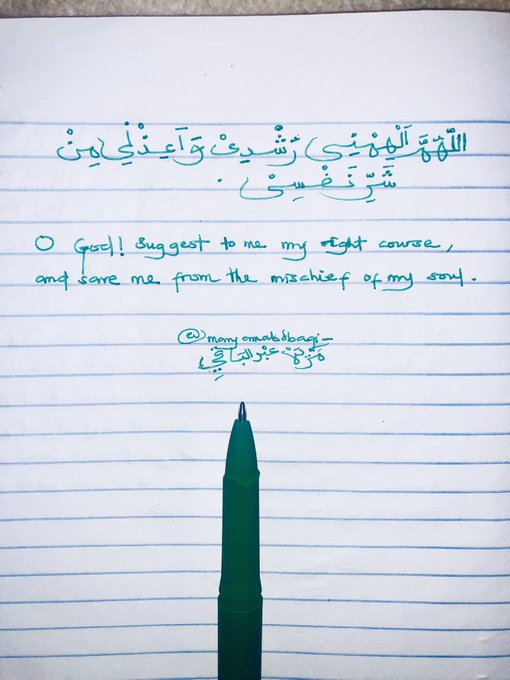 اللّٰهُمَّ اَلْهِمْنِيى رُشْدِىْ وَاَعِذْنِي مِنْ
شَرِّ نَفْسِىْ .
O God! Suggest to me my right course,
and save me from the mischief of my soul.
عبْدالبَاقِي